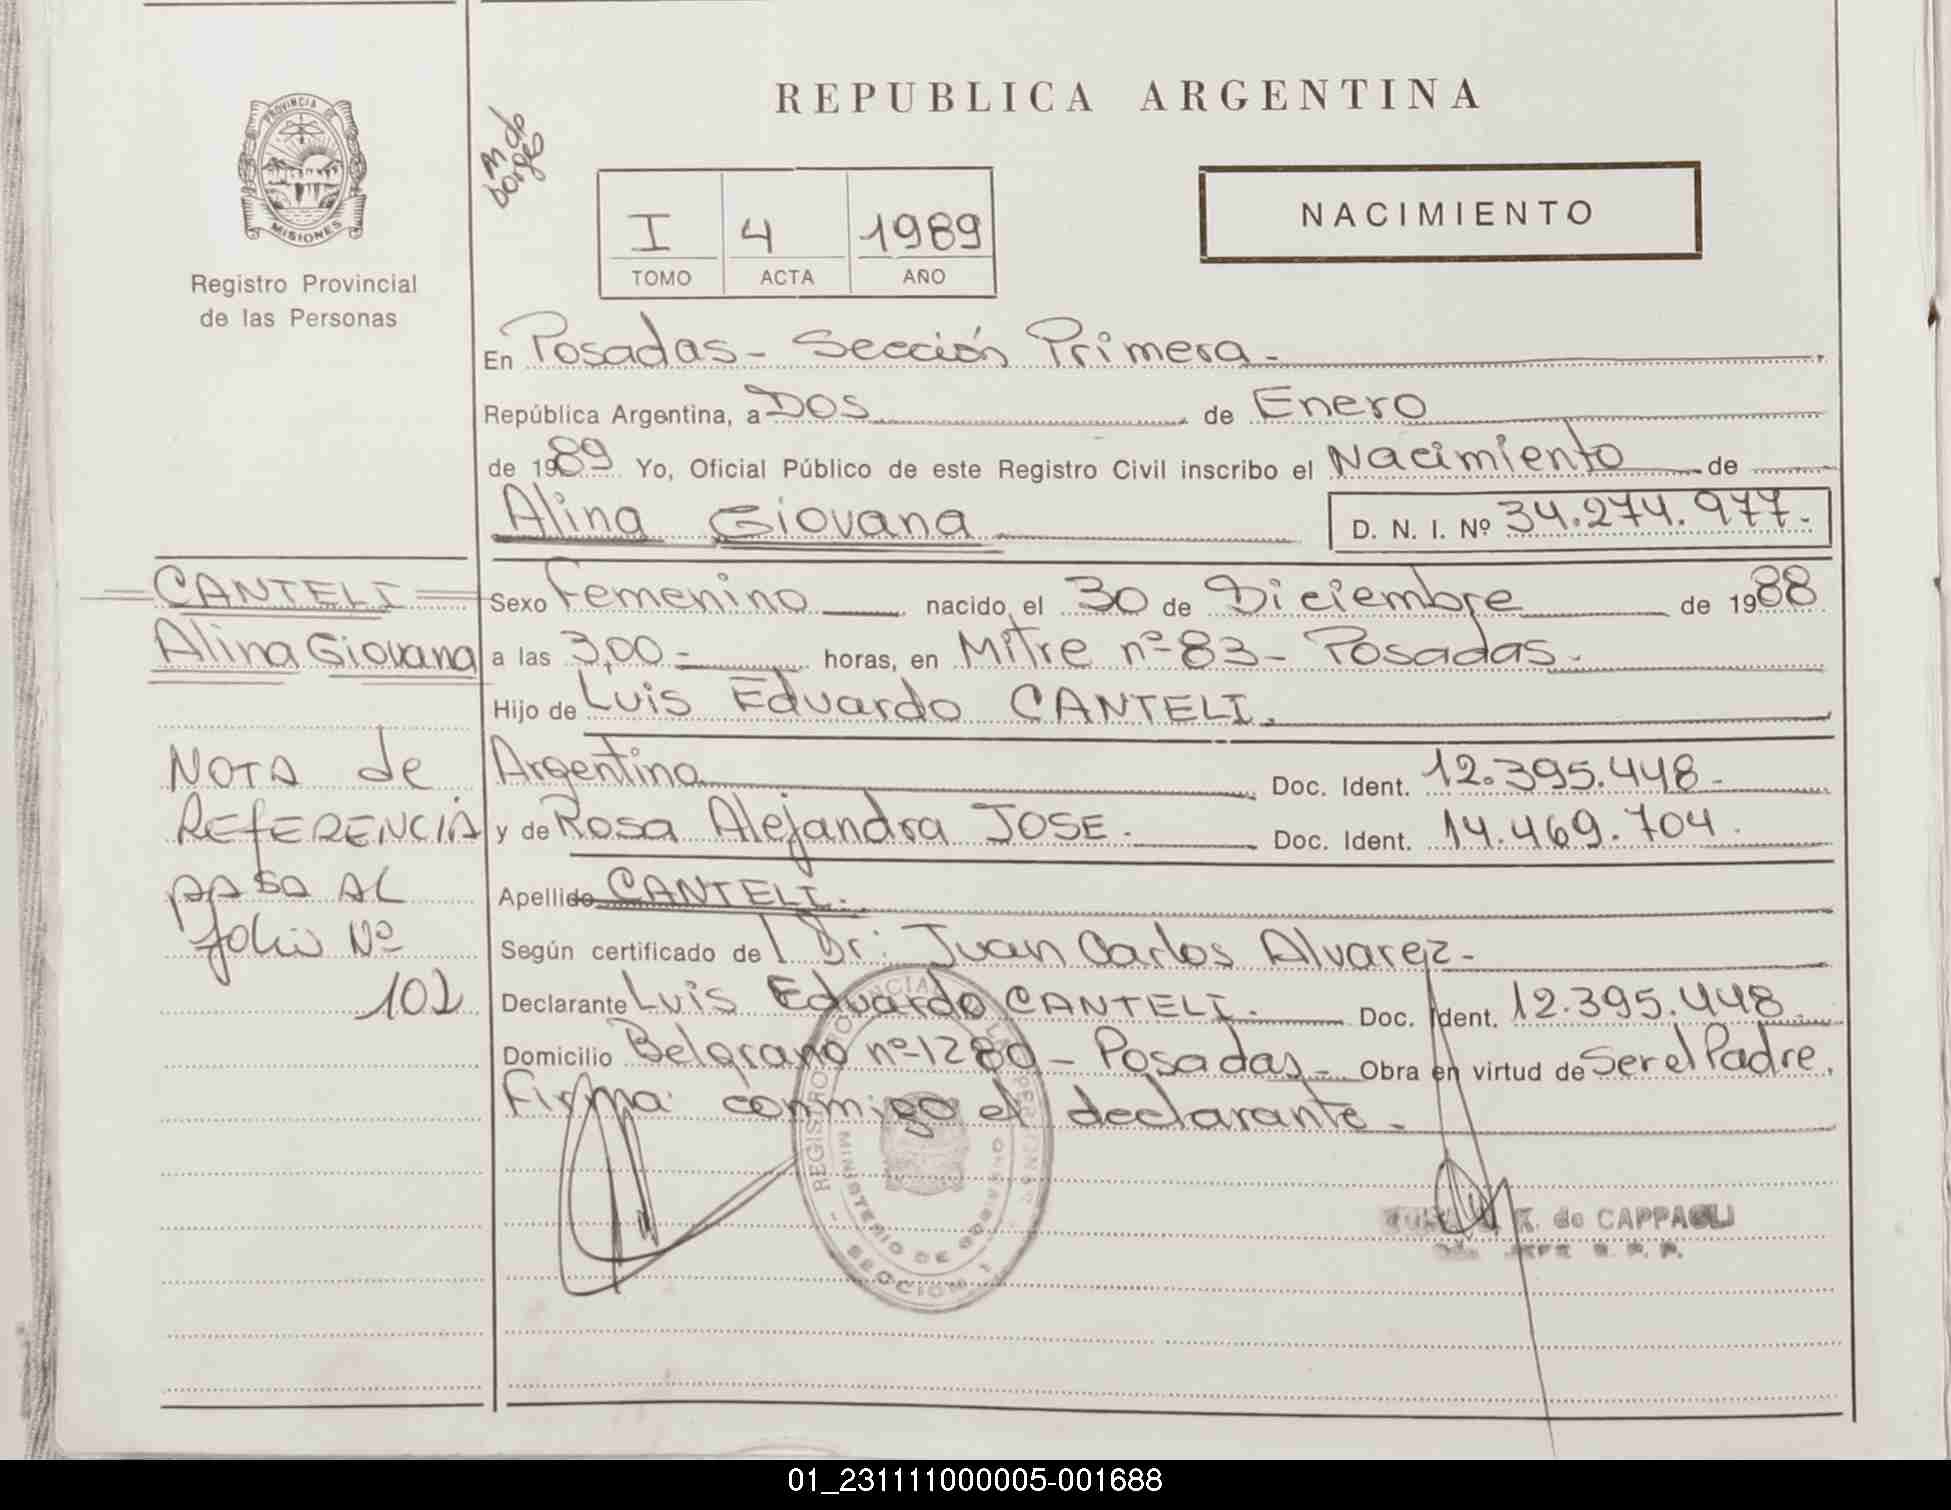 REPUBLICA ARGENTINA
PROVINCIA DE
MISIONES
Registro Provincial
de las Personas
I 4 1989
TOMO ACTA AÑO
NACIMIENTO
En Posadas - Sección Primera -
República Argentina, a Dos de Enero
de 1989 Yo, Oficial Público de este Registro Civil inscribo el Nacimiento de
Alina Giovana D. N. I. Nº 34.274.977.-
CANTELI
Alina Giovana
Sexo Femenino nacido, el 30 de Diciembre de 1988
a las 3,00 - horas, en Mitre nº 83 - Posadas -
Hijo de Luis Eduardo CANTELI.
Argentina Doc. Ident. 12.395.448 -
y de Rosa Alejandra JOSE. Doc. Ident. 14.469.704.
Apellido CANTELI.
Según certificado de l Dr: Juan Carlos Alvarez -
Declarante Luis Eduardo CANTELI. Doc. Ident. 12.395.448
Domicilio Belgrano nº 1280 - Posadas - Obra en virtud de Ser el Padre.
Firma conmigo el declarante -
NOTA de
REFERENCIA
PASA AL
folio Nº
102
REGISTRO PROVINCIAL DE LAS PERSONAS
MINISTERIO DE GOBIERNO
SECCION 1
K. de CAPPAGLI
JEFE R. P. P.
01_231111000005-001688